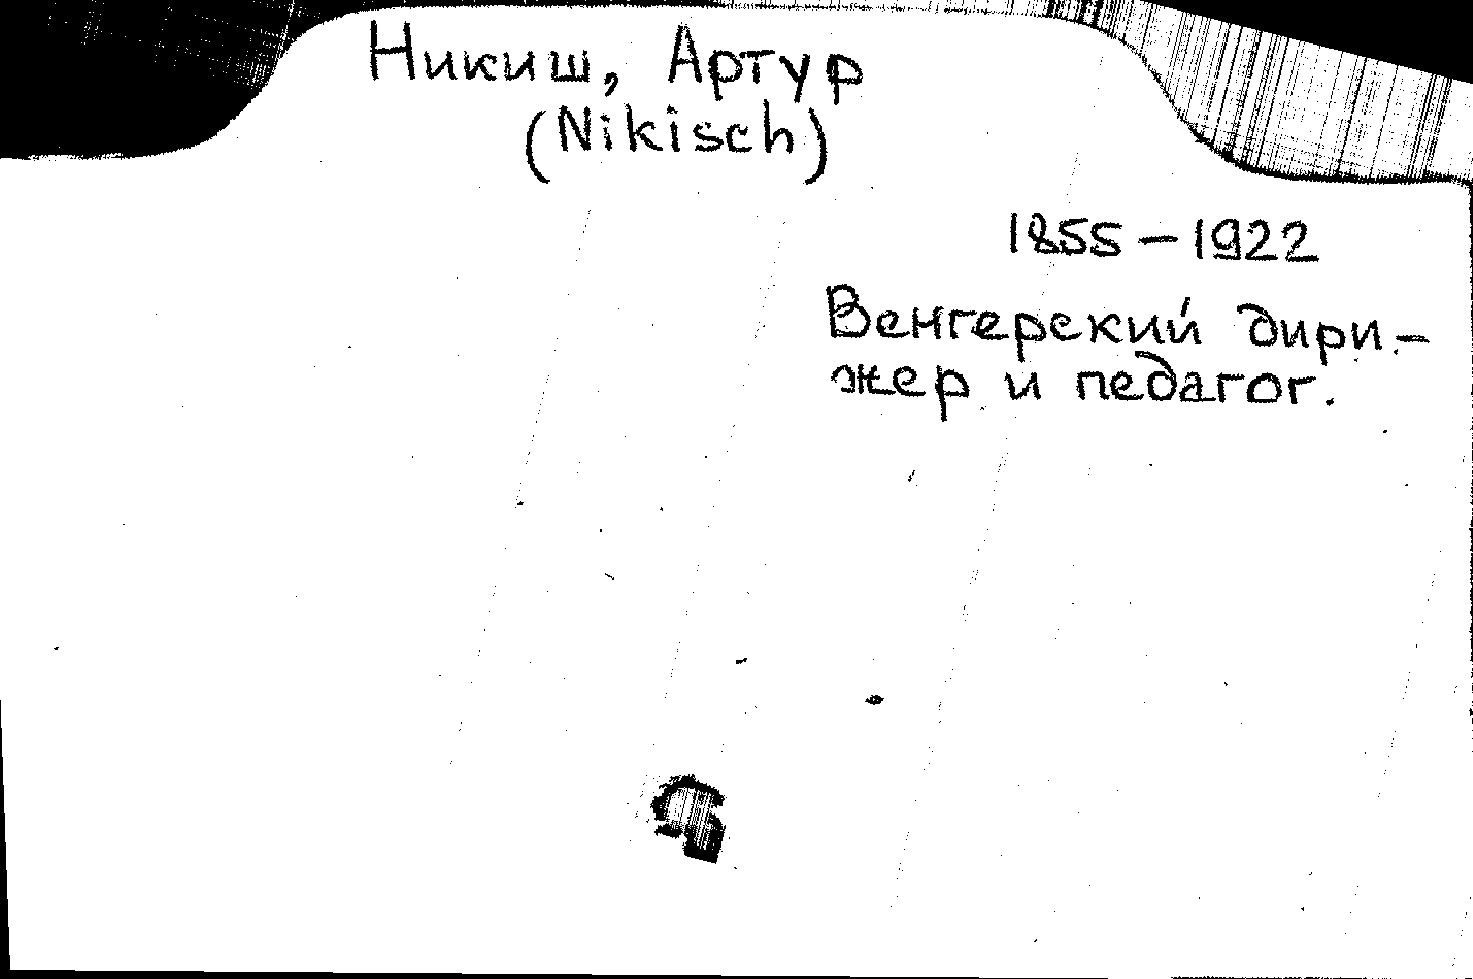 Никиш, Артур
(Nikisch)
1855 – 1922
Венгерский дири-
жер и педагог.